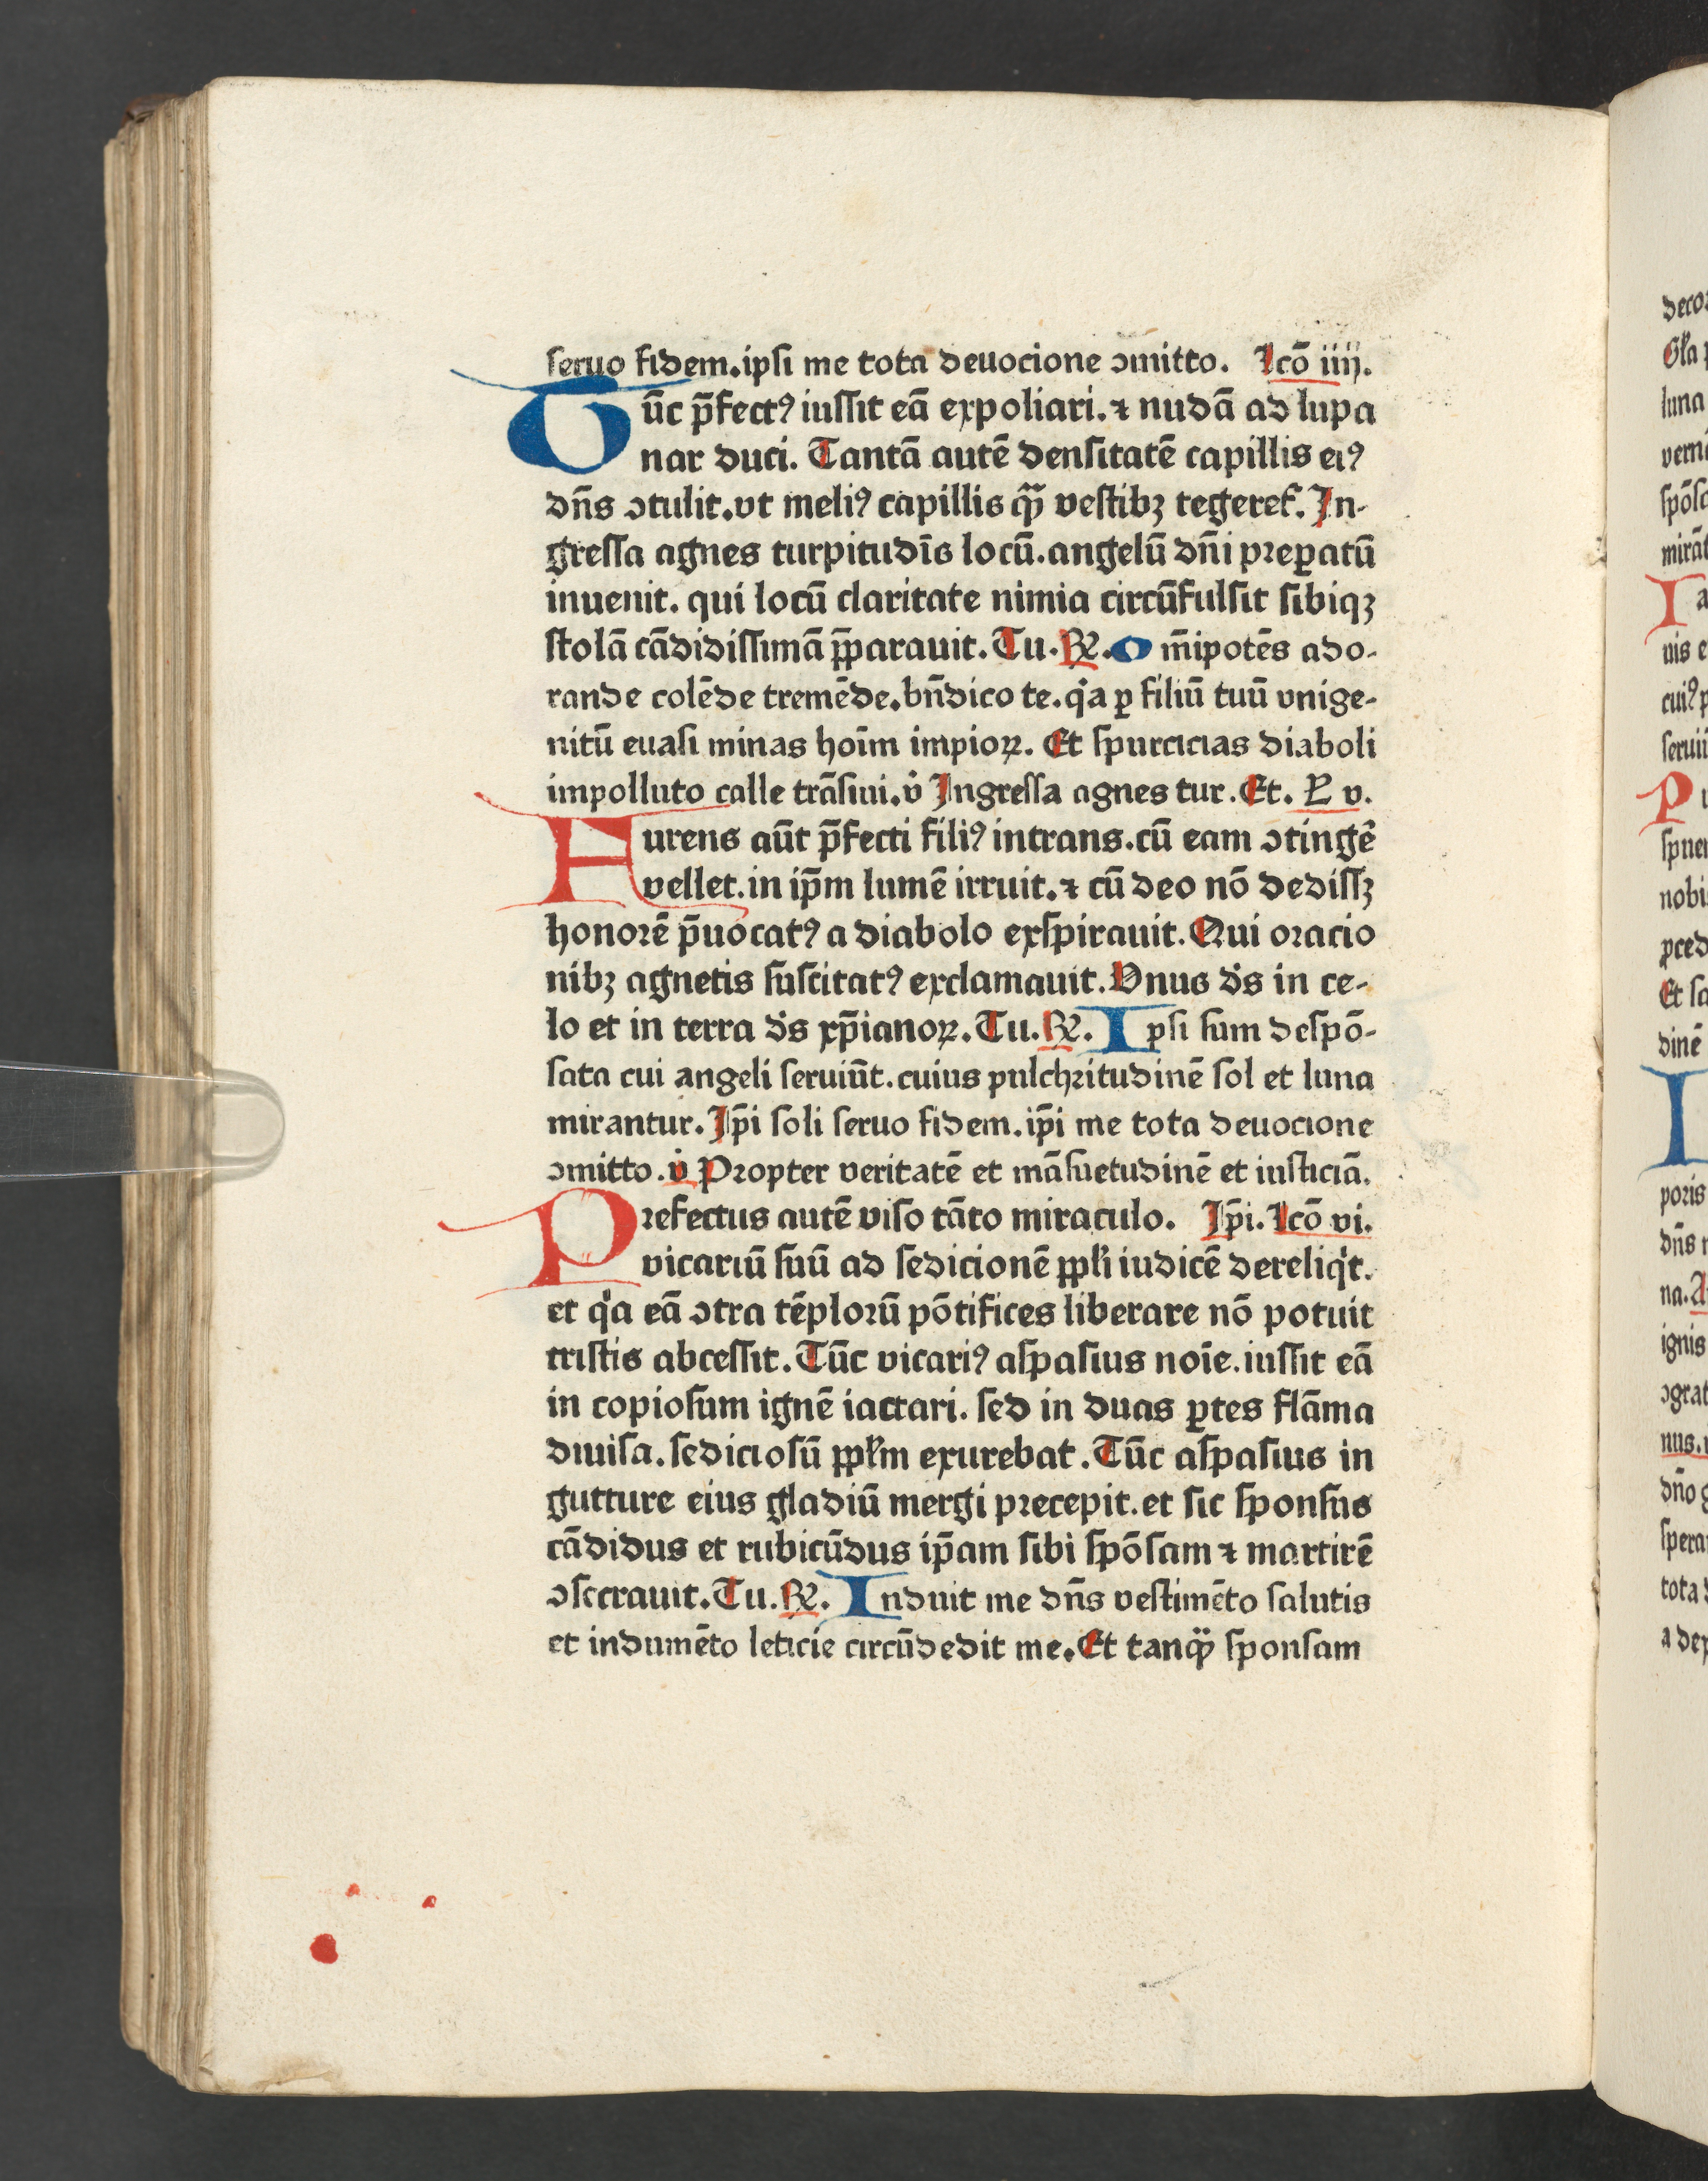 seruo fidem.ipsi me tota deuocione ↄmitto. Lcō iiij.
Tūc p̄fectꝰ iussit eā expoliari.⁊ nudā ad lupa
nar duci. Tantā autē densitatē capillis eiꝰ
dn̄s ↄtulit.vt meliꝰ capillis qͣ̄ vestibꝫ tegeret᷑. In-
gressa agnes turpitudīs locū.angelū dn̄i preꝑatū
inuenit. qui locū claritate nimia circūfulsit sibiqꝫ
stolā cādidissimā p̄parauit. Tu. ℞. O m̄ipotēs ado-
rande colēde tremēde.bn̄dico te.qͥa ꝑ filiū tuū vnige-
nitū euasi minas hoīm impioꝝ. Et spurcicias diaboli
impolluto calle trāsiui. v̊ Ingressa agnes tur. Et. L v.
Furens aūt p̄fecti filiꝰ intrans.cū eam ↄtingē
vellet.in ip̄m lumē irruit.⁊ cū deo nō dedissꝫ
honorē p̄uocatꝰ a diabolo exspirauit. Qui oracio
nibꝫ agnetis suscitatꝰ exclamauit. Vnus ds̄ in ce-
lo et in terra ds̄ xp̄ianoꝝ. Tu. ℞. Ipsi sum despō-
sata cui angeli seruiūt.cuius pulchritudinē sol et luna
mirantur. Ip̄i soli seruo fidem.ip̄i me tota deuocione
ↄmitto. v̊ Propter veritatē et māsuetudinē et iusticiā.
Prefectus autē viso tāto miraculo. Ip̄i. Lcō vi.
vicariū suū ad sedicionē ppl̄i iudicē dereliqͥt.
et qͥa eā ↄtra tēplorū pōtifices liberare nō potuit
tristis abcessit. Tūc vicariꝰ aspasius noīe.iussit eā
in copiosum ignē iactari. sed in duas ꝑtes flāma
diuisa.sediciosū ppl̄m exurebat. Tūc aspasius in
gutture eius gladiū mergi precepit.et sic sponsus
cādidus et rubicūdus ip̄am sibi spōsam ⁊ martirē
ↄsecrauit. Tu. ℞. Induit me dn̄s vestimēto salutis
et indumēto leticie circūdedit me. Et tanqͣ̄ sponsam